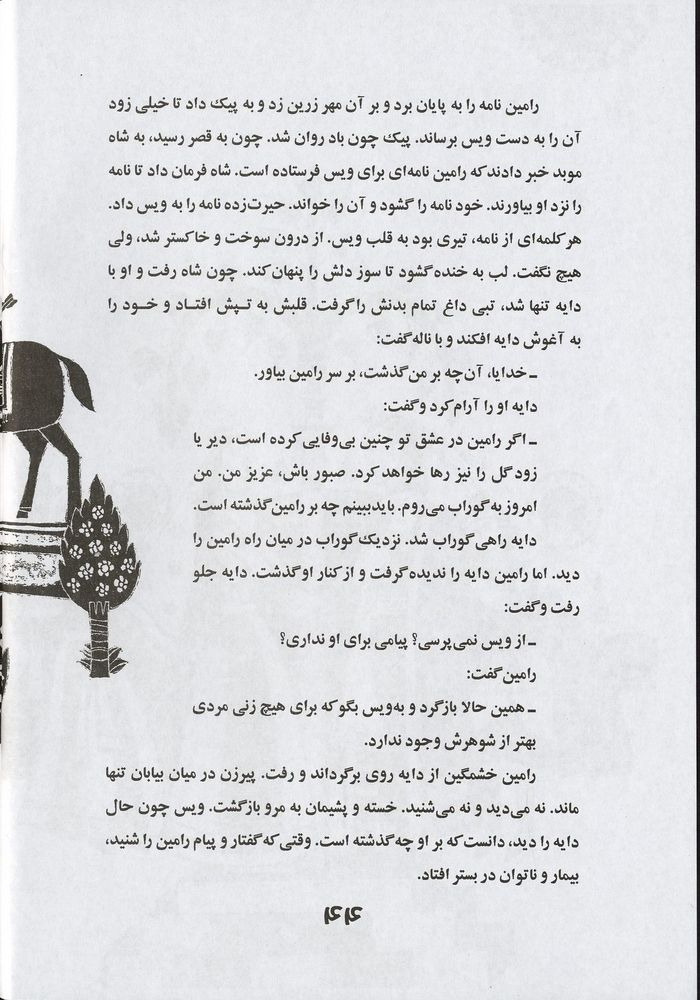 رامین نامه را به پایان برد و بر آن مهر زرین زد و به پیک داد تا خیلی زود
آن را به دست ویس برساند. پیک چون باد روان شد. چون به قصر رسید، به شاه
موبد خبر دادند که رامین نامه‌ای برای ویس فرستاده است. شاه فرمان داد تا نامه
را نزد او بیاورند. خود نامه را گشود و آن را خواند. حیرت‌زده نامه را به ویس داد.
هر کلمه‌ای از نامه، تیری بود به قلب ویس. از درون سوخت و خاکستر شد، ولی
هیچ نگفت. لب به خنده گشود تا سوز دلش را پنهان کند. چون شاه رفت و او با
دایه تنها شد، تبی داغ تمام بدنش را گرفت. قلبش به تپش افتاد و خود را
به آغوش دایه افکند و با ناله گفت:
ـ خدایا، آن‌چه بر من گذشت، بر سر رامین بیاور.
دایه او را آرام کرد و گفت:
ـ اگر رامین در عشق تو چنین بی‌وفایی کرده است، دیر یا
زود گل را نیز رها خواهد کرد. صبور باش، عزیز من. من
امروز به گوراب می‌روم. باید ببینم چه بر رامین گذشته است.
دایه راهی گوراب شد. نزدیک گوراب در میان راه رامین را
دید. اما رامین دایه را ندیده گرفت و از کنار او گذشت. دایه جلو
رفت و گفت:
ـ از ویس نمی‌پرسی؟ پیامی برای او نداری؟
رامین گفت:
ـ همین حالا بازگرد و به ویس بگو که برای هیچ زنی مردی
بهتر از شوهرش وجود ندارد.
رامین خشمگین از دایه روی برگرداند و رفت. پیرزن در میان بیابان تنها
ماند. نه می‌دید و نه می‌شنید. خسته و پشیمان به مرو بازگشت. ویس چون حال
دایه را دید، دانست که بر او چه گذشته است. وقتی که گفتار و پیام رامین را شنید،
بیمار و ناتوان در بستر افتاد.
۴۶